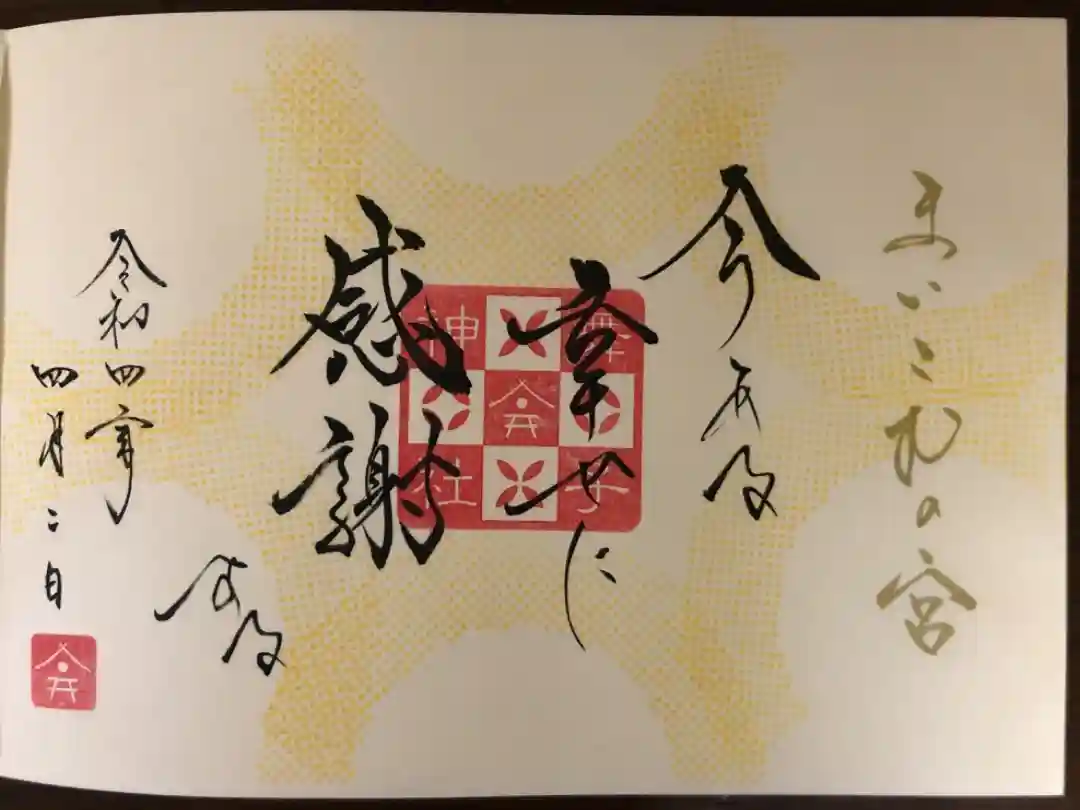 まいこれの宮
今ある
幸せに
感謝
する
令和四年
四月二日
舞子
神社